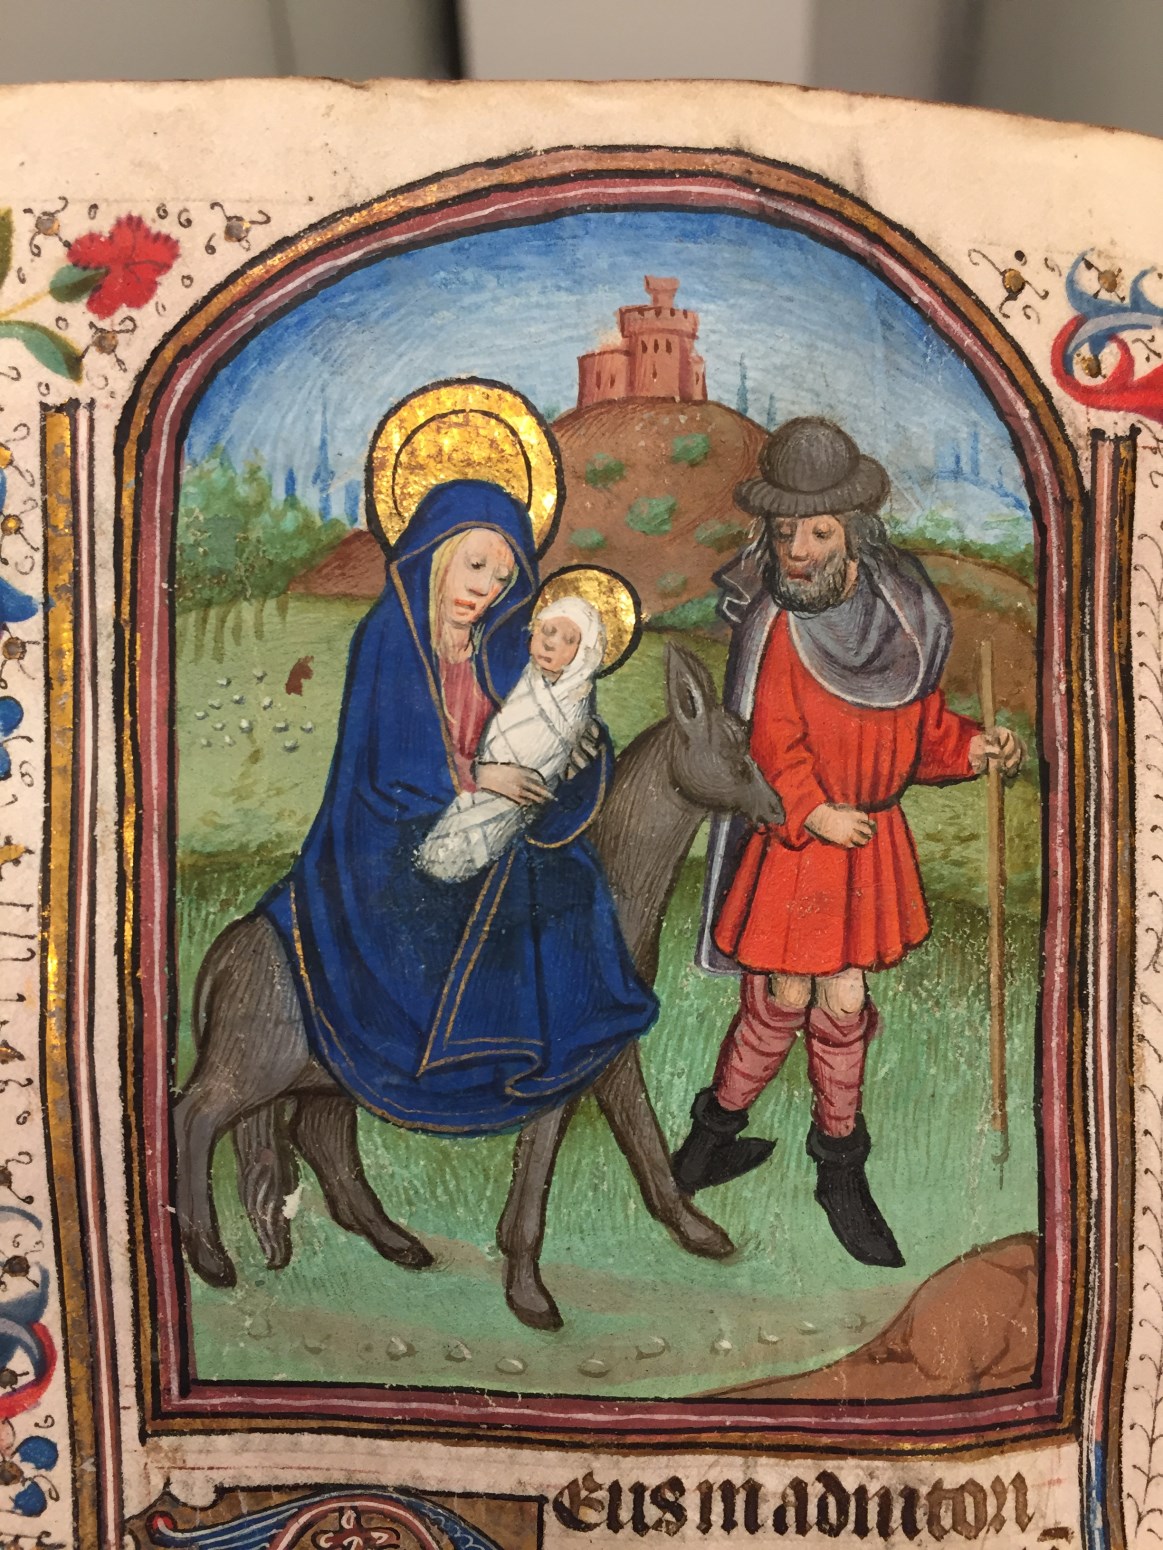 Eus in adiuton